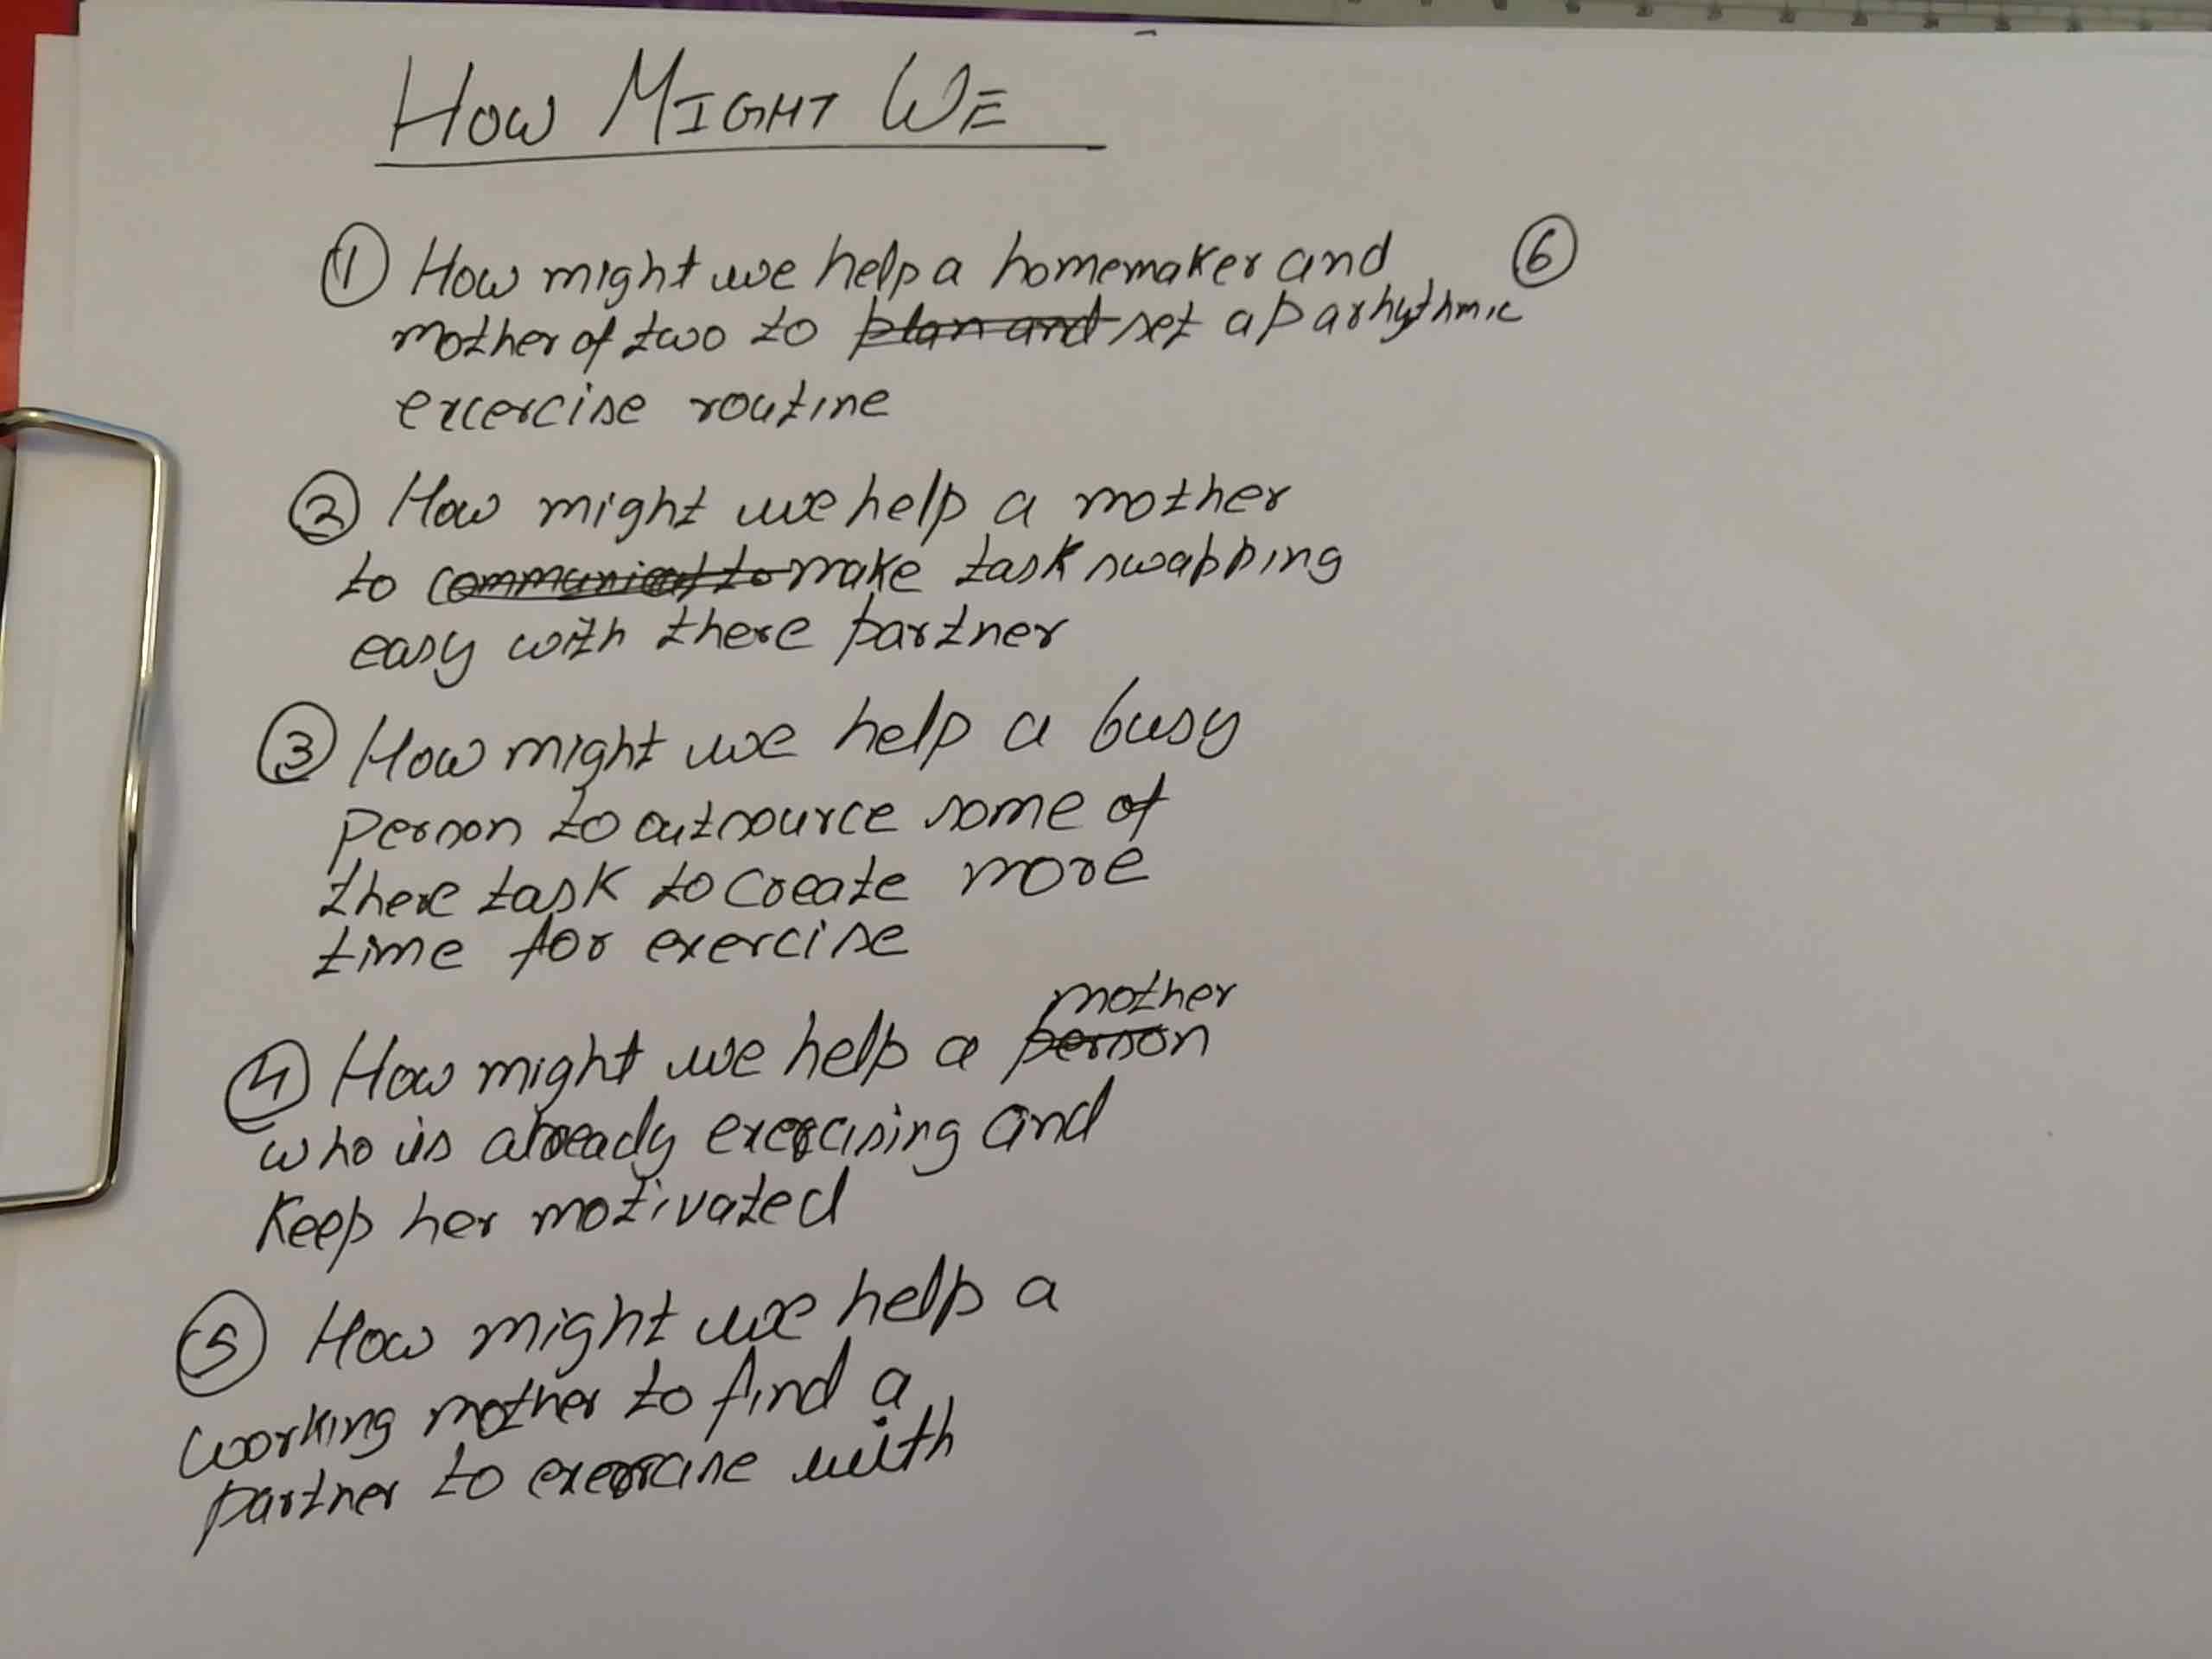 How Might We
① How might we help a homemaker and
mother of two to plan and set aparhythmic
excercise routine
② How might we help a mother
to communicat to make task swapping
easy with there partner
③ How might we help a busy
person to outsource some of
there task to create more
time for exercise
mother
④ How might we help a person
who is already exercising and
keep her motivated
⑤ How might we help a
working mother to find a
partner to exercise with
⑥